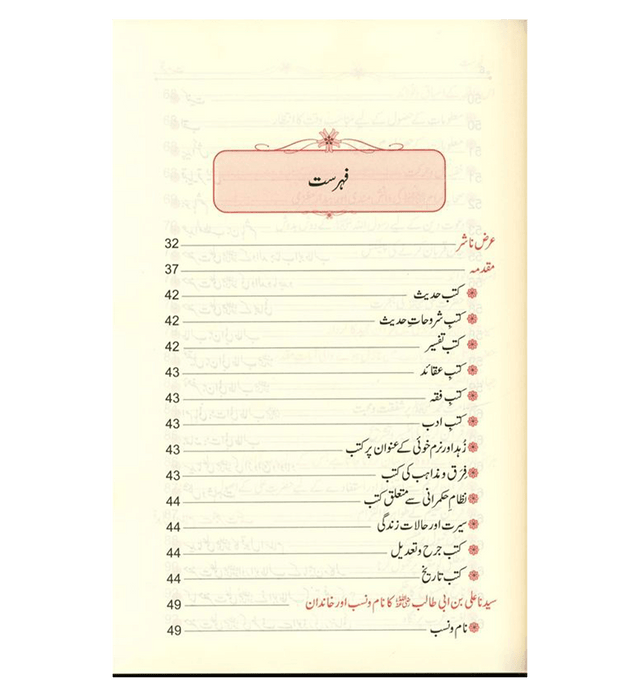 فہرست
عرض ناشر 32
مقدمہ 37
کتب حدیث 42
کتب شروحاتِ حدیث 42
کتب تفسیر 42
کتبِ عقائد 43
کتبِ فقہ 43
کتبِ ادب 43
زُہد اور نرم خوئی کے عنوان پر کتب 43
فِرَق و مذاہب کی کتب 43
نظامِ حکمرانی سے متعلق کتب 44
سیرت اور حالات زندگی 44
کتب جرح و تعدیل 44
کتبِ تاریخ 44
سیدنا علی بن ابی طالب رضی اللہ عنہ کا نام و نسب اور خاندان 49
نام و نسب 49